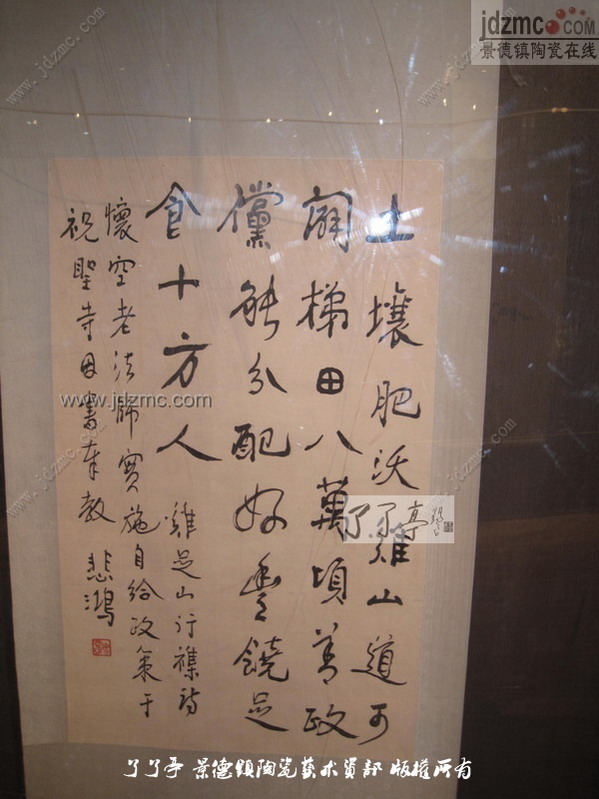 jdzmc.COM
景德镇陶瓷在线
土壤肥沃雞山道可
闢梯田八萬頃善政
儻能分配好豊饒足
食十方人
雞足山行襍詩
懷空老法師實施自給政策于
祝聖寺因書奉教
悲鴻
www.jdzmc.com
了了亭
了了亭 景德镇陶瓷藝术資部 版權所有